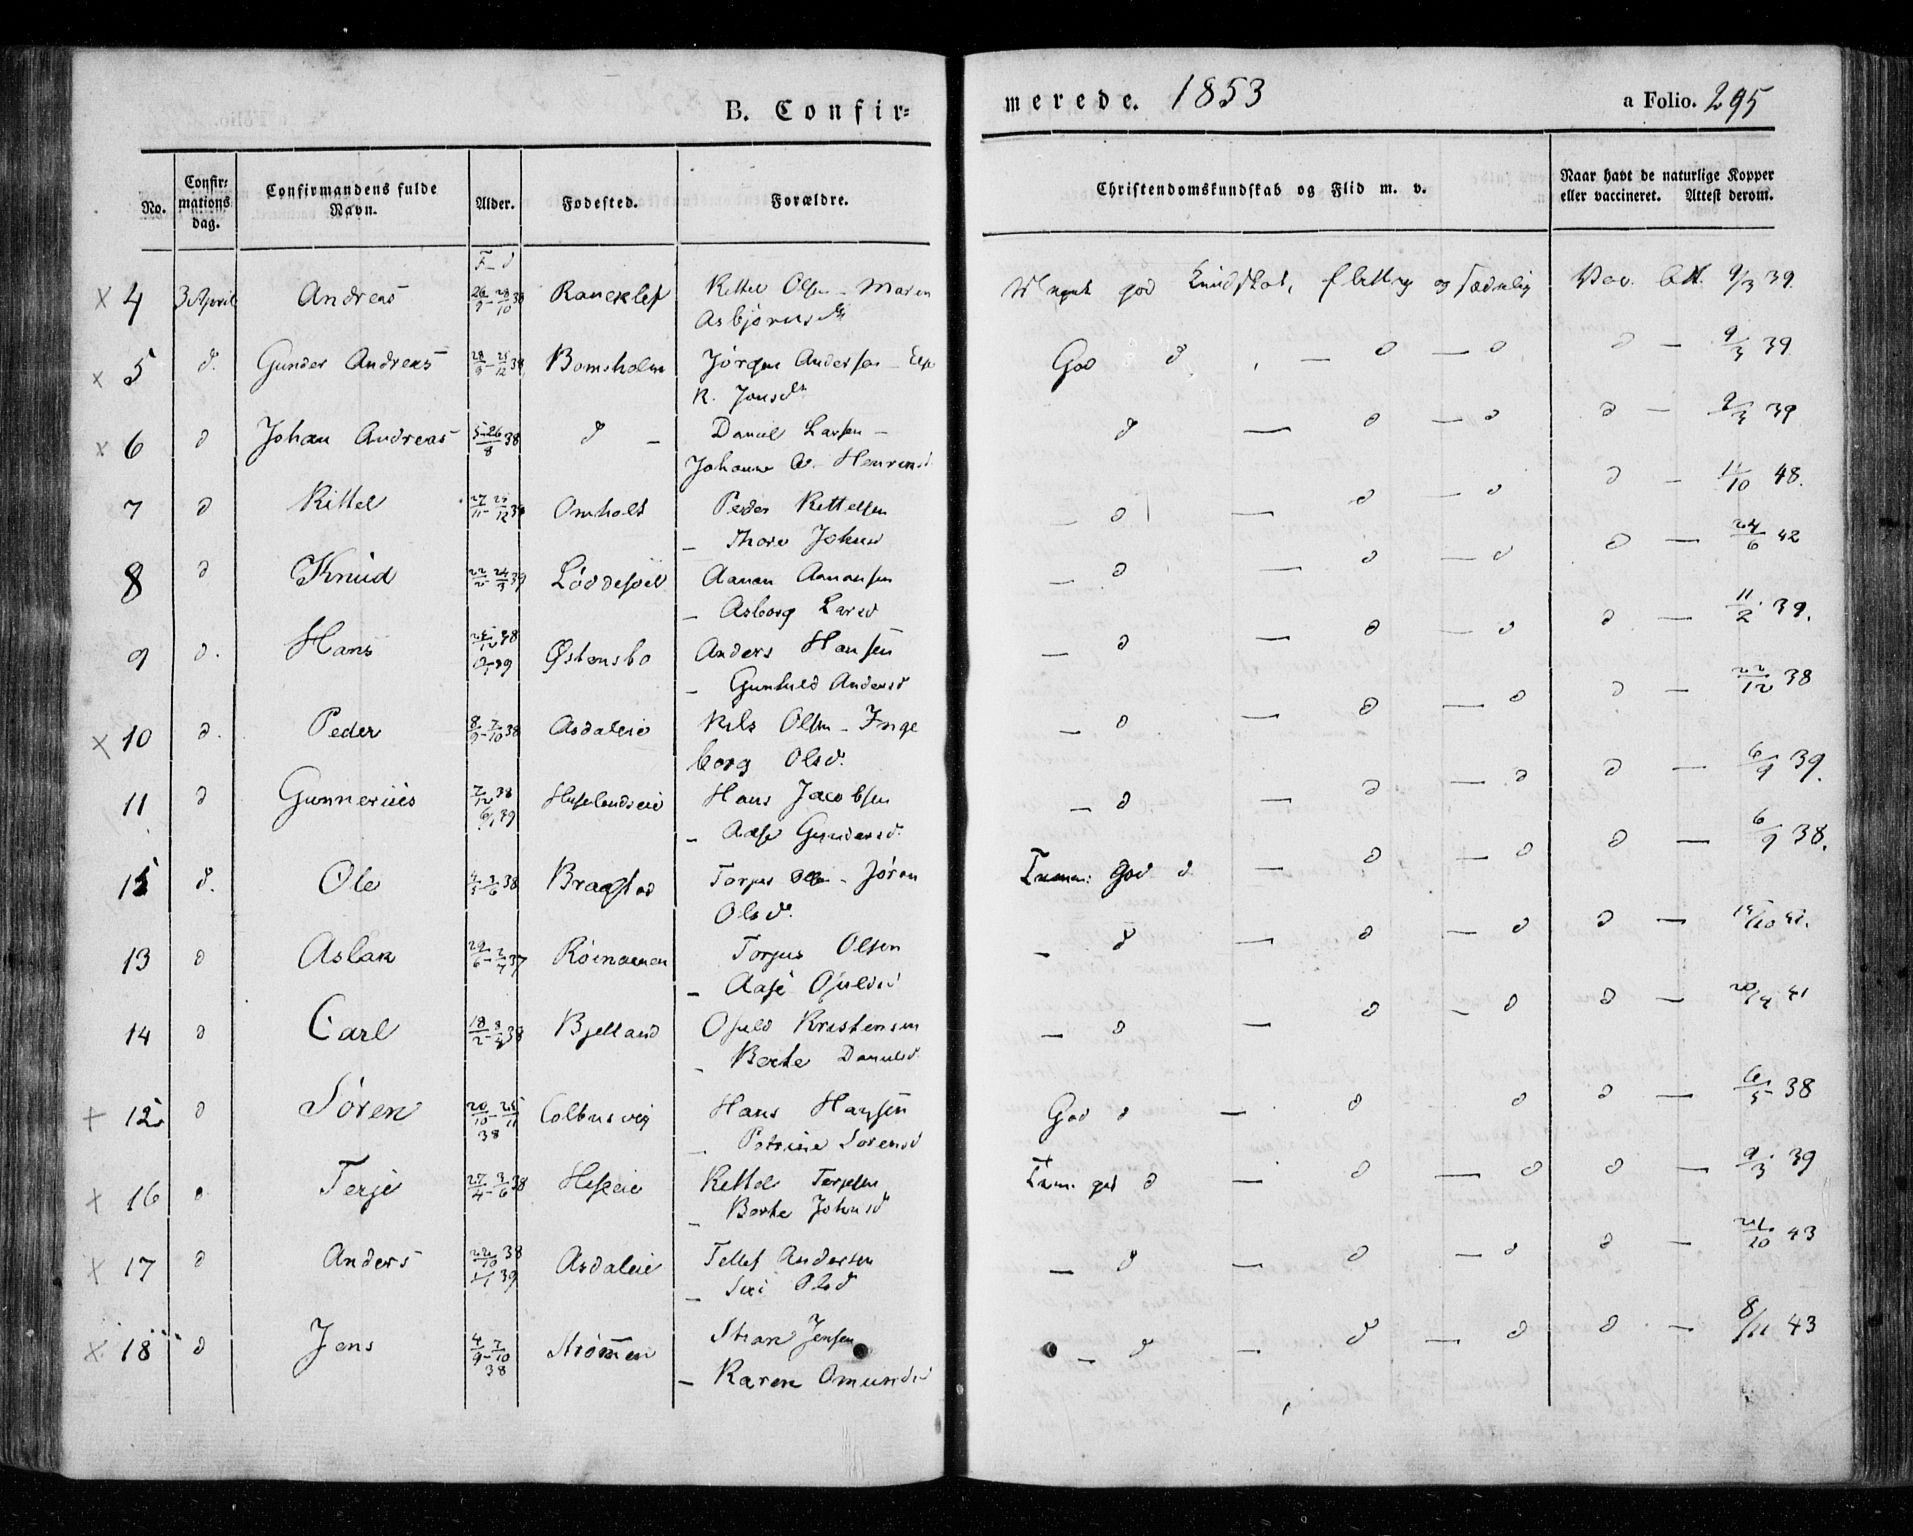 B. Confir=
merede. 1853
a Folio. 295
No.
Confir=
mations
dag.
Confirmandens fulde
Navn.
Alder.
Fødested.
Forældre.
Christendomskundskab og Flid m. v.
Naar havt de naturlige Kopper
eller vaccineret. Attest derom.
F_d
x 4 3 April Andreas Kittel Olsen - Maren
Asbjørnsdr
Meget god Kundskab, flittig og sædelig Vac. Att. 9/3 39.
x 5 d. Gunder Andreas 28/9 - 25/12 38 Bomsholm Jørgen Andersen -
K. Jonsdr
God d - d - d d - 9/3 39
x 6 d Johan Andreas 5-26/8 38 d - Daniel Larsen -
Johanne
d - d - d d - 9/3 39
7 d Kittel Omholt Peder Kittelsen
- Thore Johnsd
- d - d - d d - 48.
8 d Knud 39 Løddesøel Aanan Aanansen
- Asborg Larsd
- d - d - d d - 24/6 42
9 d. Hans Østensbo Anders Hansen
- Gunhild Andersd
- d - d - d d - 11/2 39.
x 10 d. Peder 8/9 - 7/10 38 Asdaleie Nils Olsen - Inge
borg Olsd.
- d - d - d d - 22/12 38
11 d Gunnerius 7/12 38
6/1 39 Hans Jacobsen
- Aase Gundersd.
- d - d - d d - 6/9 39.
15 d. Ole Bragstad Torjus - Jøran
Olsd.
Temm: God d - d - d d - 6/9 38.
13 d Aslak 29/6 - 2/7 37 Torjus Olsen
- Aase Osuldsd
- d - d - d d -
14 d Carl 18/2 - 38 Bjelland Osuld Kristensen
- Berte Danielsd.
- d - d - d d - 41
+ 12 d Søren 20/10 - 25/11
38 Colbusvig Hans Hansen
- Petrine Sørensd
God d - d d d - 6/5 38
x 16 d Terje 27/4 - 3/6 38 Kittel Terjesen
- Berte Johnsd
Tem. god d - d - d d - 9/3 39
x 17 d Anders 22/10 38
39 Asdaleie Tellef Andersen
- Siri Olsd
- d - d - d d - 43
x 18 d Jens 4/9 - 7/10
38 Strømmen Stian Jensen
- Karen Omundsd
- d - d - d d - 8/11 43